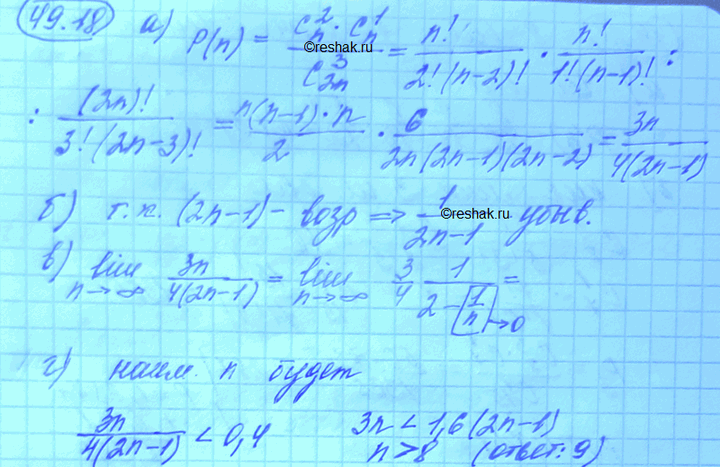 49.18 а) P(n) = C_n^2 · C_n^1 / C_{2n}^3 = n! / 2!(n-2)! · n! / 1!(n-1)! :
©reshak.ru
: (2n)! / 3!(2n-3)! = n(n-1)·n / 2 · 6 / 2n(2n-1)(2n-2) = 3n / 4(2n-1)
б) т.к. (2n-1) - возр => 1 / 2n-1 убыв.
©reshak.ru
в) lim n→∞ 3n / 4(2n-1) = lim n→∞ 3/4 1 / 2-[1/n]→0 =
г) наим. n будет
3n / 4(2n-1) < 0,4 3n < 1,6(2n-1)
n > 8 (ответ: 9)